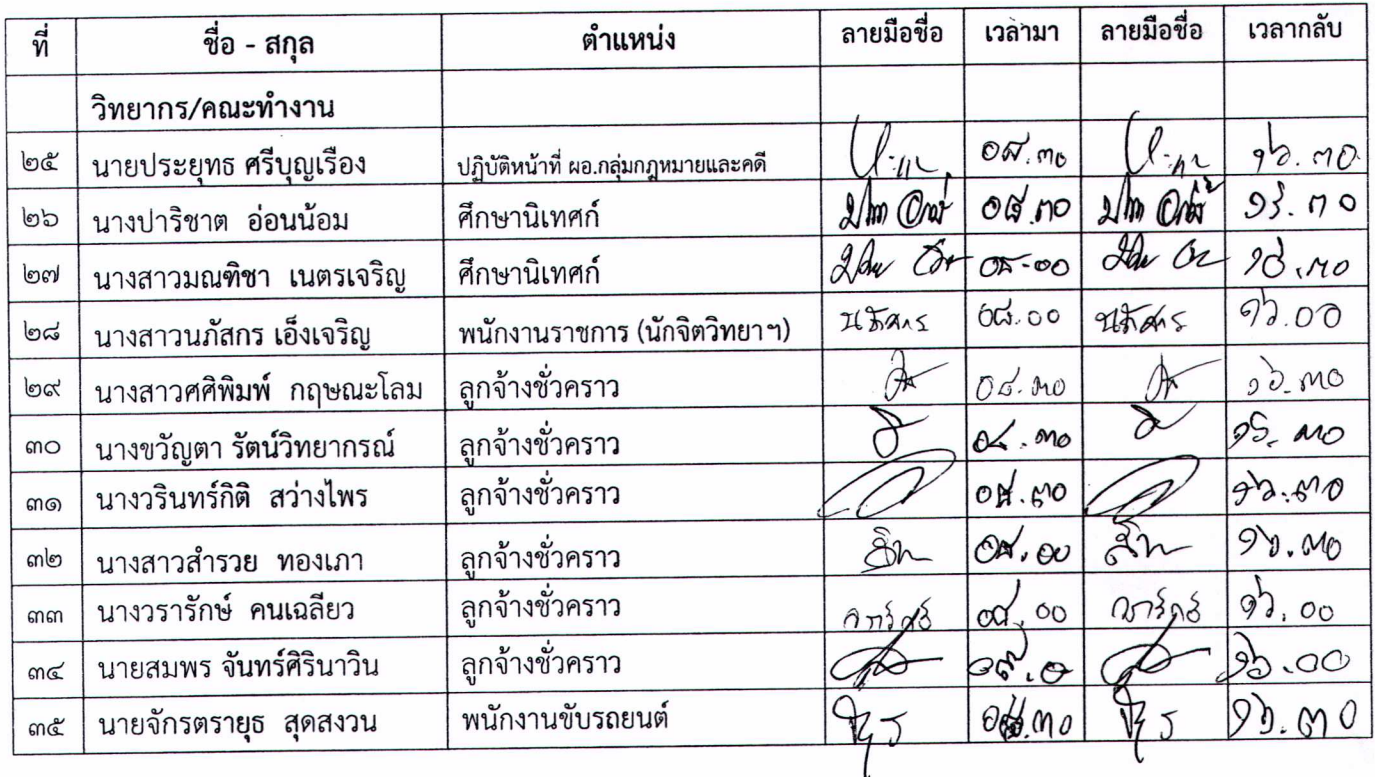 ที่ ชื่อ - สกุล ตำแหน่ง ลายมือชื่อ เวลามา ลายมือชื่อ เวลากลับ
วิทยากร/คณะทำงาน
๒๕ นายประยุทธ ศรีบุญเรือง ปฏิบัติหน้าที่ ผอ.กลุ่มกฎหมายและคดี ๐๘.๓๐ ๑๖.๓๐
๒๖ นางปาริชาต อ่อนน้อม ศึกษานิเทศก์ ๐๘.๓๐ ๑๖.๓๐
๒๗ นางสาวมณฑิชา เนตรเจริญ ศึกษานิเทศก์ ๐๘.๐๐ ๑๖.๓๐
๒๘ นางสาวนภัสกร เอ็งเจริญ พนักงานราชการ (นักจิตวิทยาฯ) นภัสกร ๐๘.๐๐ นภัสกร ๑๖.๐๐
๒๙ นางสาวศศิพิมพ์ กฤษณะโลม ลูกจ้างชั่วคราว ๐๘.๓๐ ๑๖.๓๐
๓๐ นางขวัญตา รัตน์วิทยากรณ์ ลูกจ้างชั่วคราว ๐๘.๓๐ ๑๖.๓๐
๓๑ นางวรินทร์กิติ สว่างไพร ลูกจ้างชั่วคราว ๐๘.๓๐ ๑๖.๓๐
๓๒ นางสาวสำรวย ทองเภา ลูกจ้างชั่วคราว ๐๘.๐๐ ๑๖.๓๐
๓๓ นางวรารักษ์ คนเฉลียว ลูกจ้างชั่วคราว วรารักษ์ ๐๘.๐๐ วรารักษ์ ๑๖.๐๐
๓๔ นายสมพร จันทร์ศิรินาวิน ลูกจ้างชั่วคราว ๑๖.๐๐
๓๕ นายจักรตรายุธ สุดสงวน พนักงานขับรถยนต์ ๐๘.๓๐ ๑๖.๓๐